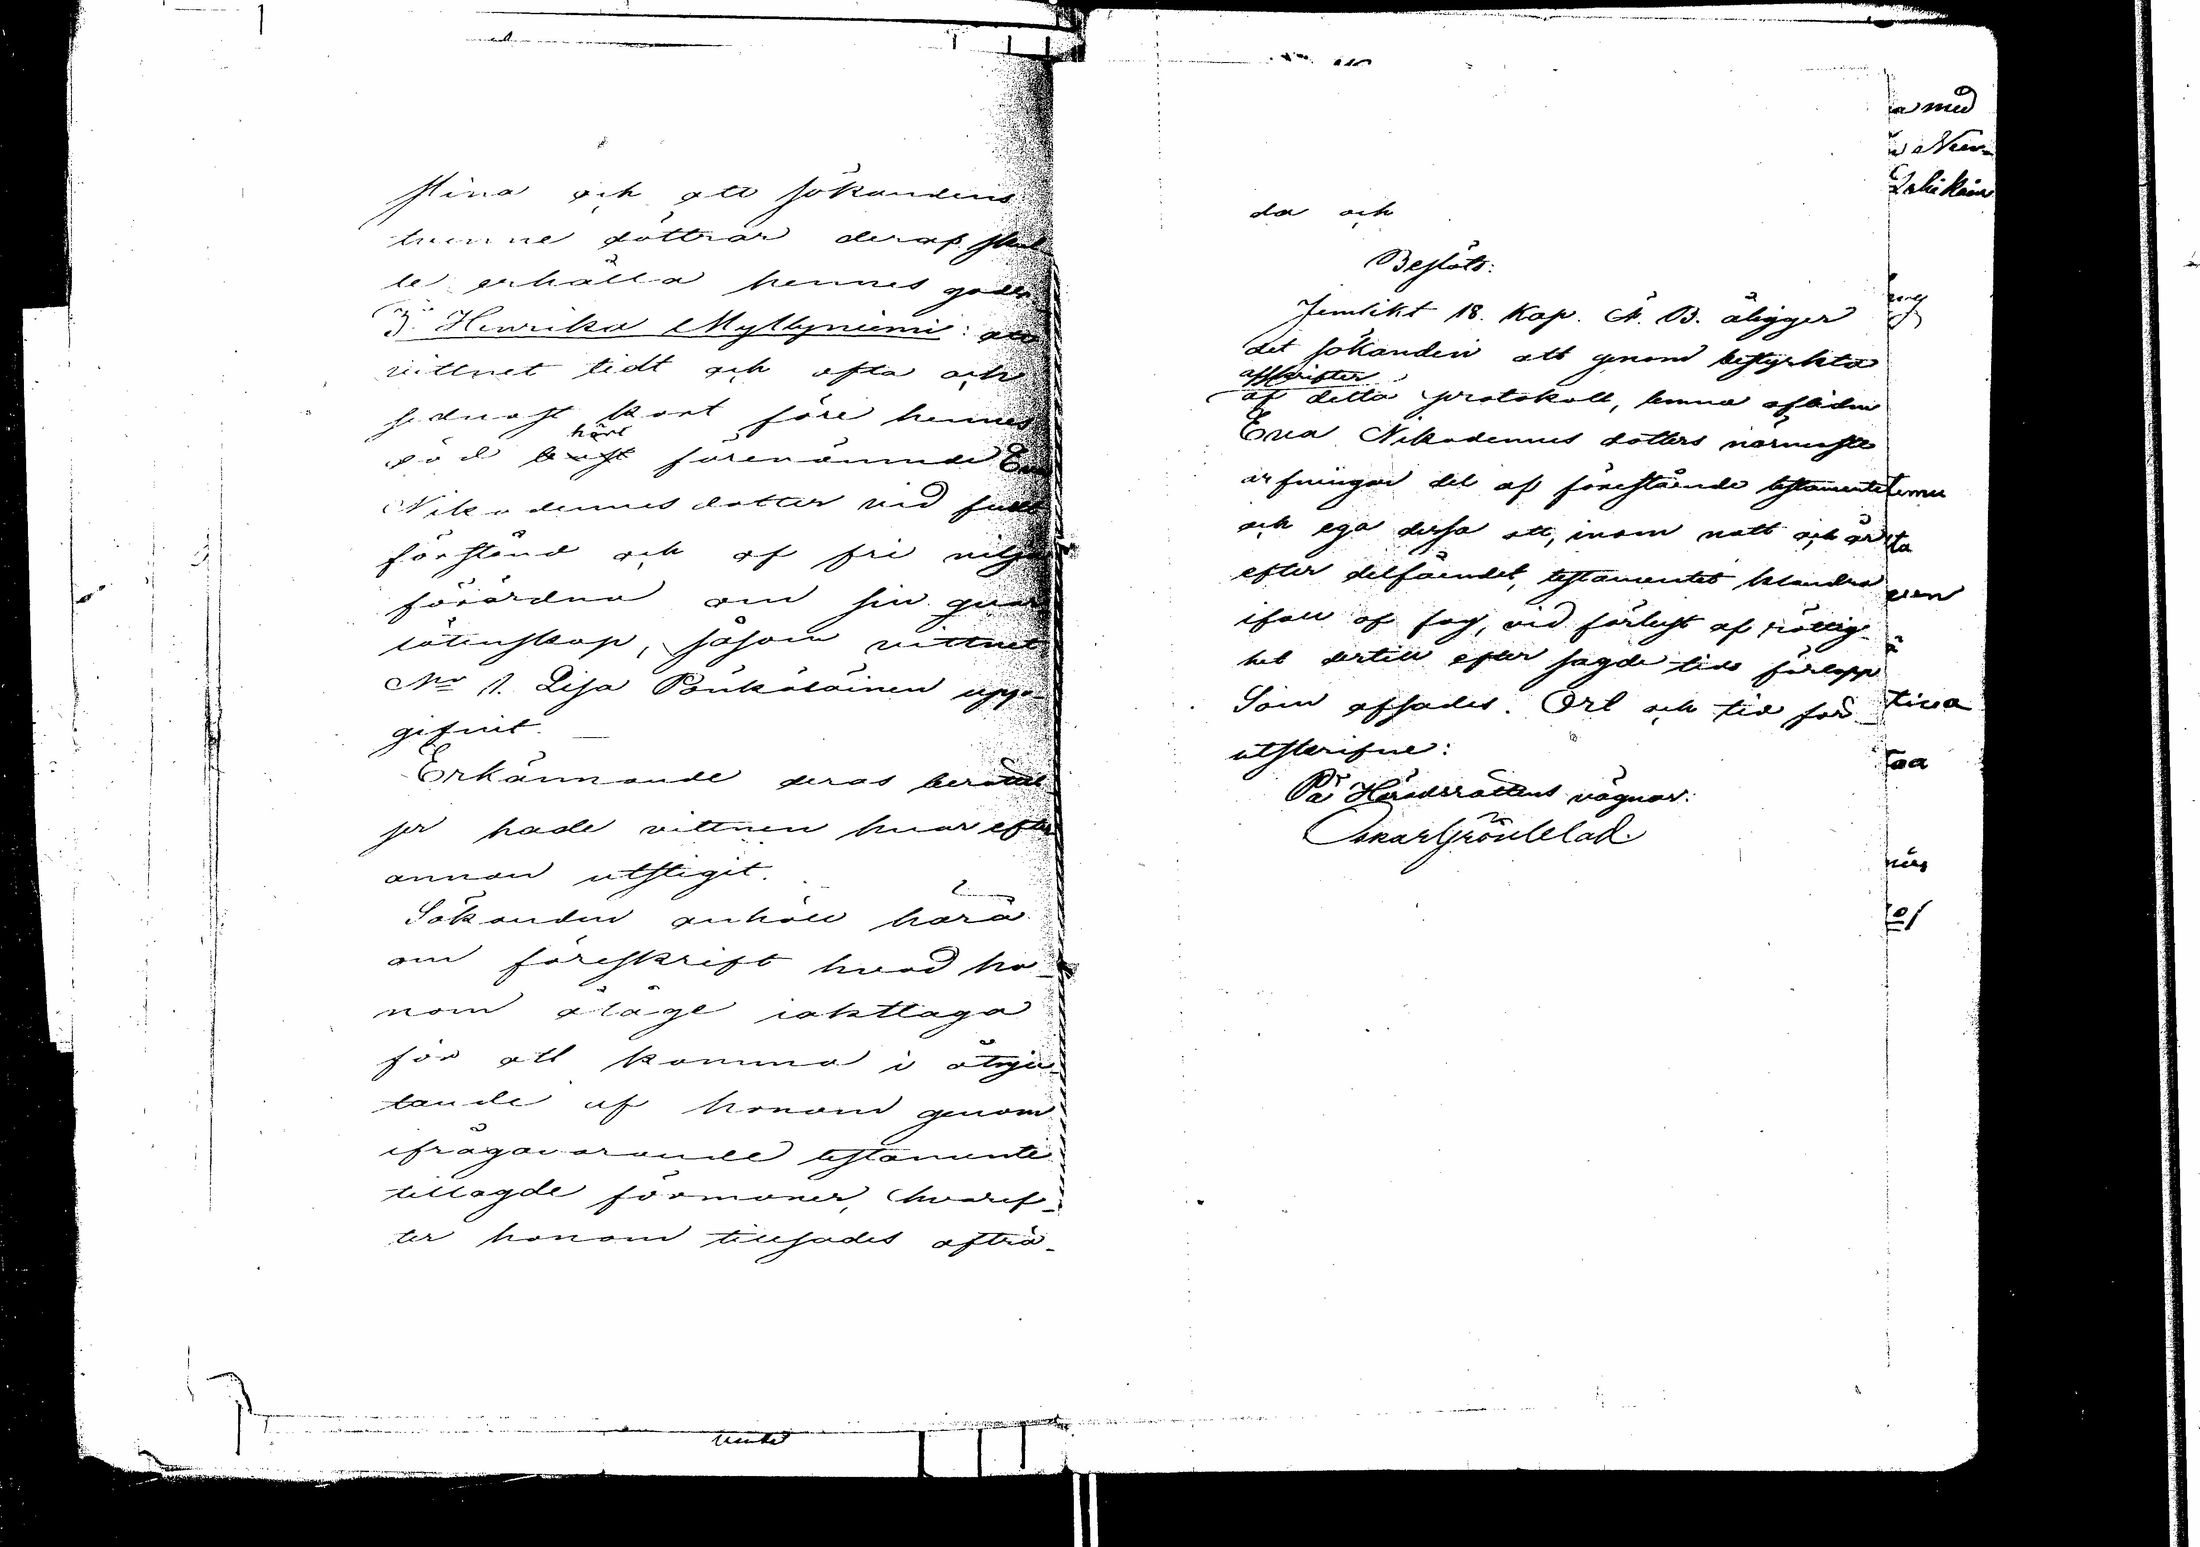 stina och att sökandens
tvenne döttrar deraf skul-
le erhålla hennes
3. Henrika Myllyniemi: att
vittnet tidt och ofta och
sednast kort före hennes
död hört förenämnde Eva
Nikodemusdotter vid fullt
förstånd och af fri vilja
förordna om sin qvar-
låtenskap, såsom vittnet
No 1. Lisa Pönkäläinen upp-
gifvit.
Erkännande deras berättel-
ser hade vittnen hvar efter
annan utstigit.
Sökanden anhöll härå
om föreskrift hvad ho-
nom ålåge iakttaga
för att komma i åtnju-
tande af honom genom
ifrågavarande testamente
tillagde förmoner, hvaref-
ter honom tillsades afträ-
da och
Beslöts:
Jemlikt 18. Kap. Ä. B. åligger
det sökanden att genom bestyrkta
afskrifter
af detta protokoll, lemna aflidna
Eva Nikodemusdotters närmaste
arfvingar del af förestående testamente
och ega dessa att, inom natt och år
efter delfåendet, testamentet klandra
ifall af fog, vid förlust af rättig-
het dertill efter sagde tids förlopp
Som afsades. Ort och tidför-
utskrifne:
På Häradsrättens vägnar:
Oskar Grönblad.